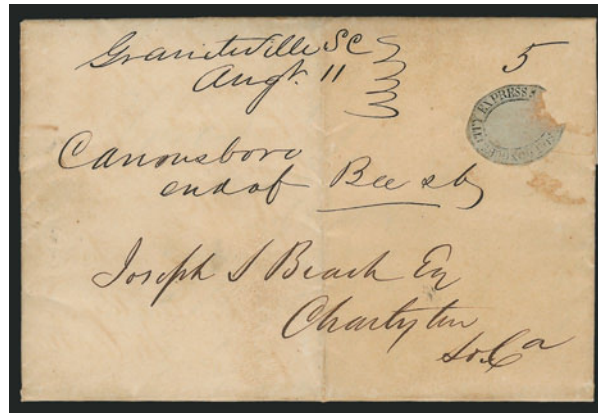 Graniteville SC
Augt. 11
5
CITY EXPRESS
Canonsboro
end of Bee st
Joseph S Beach Eq
Charleston
So Ca